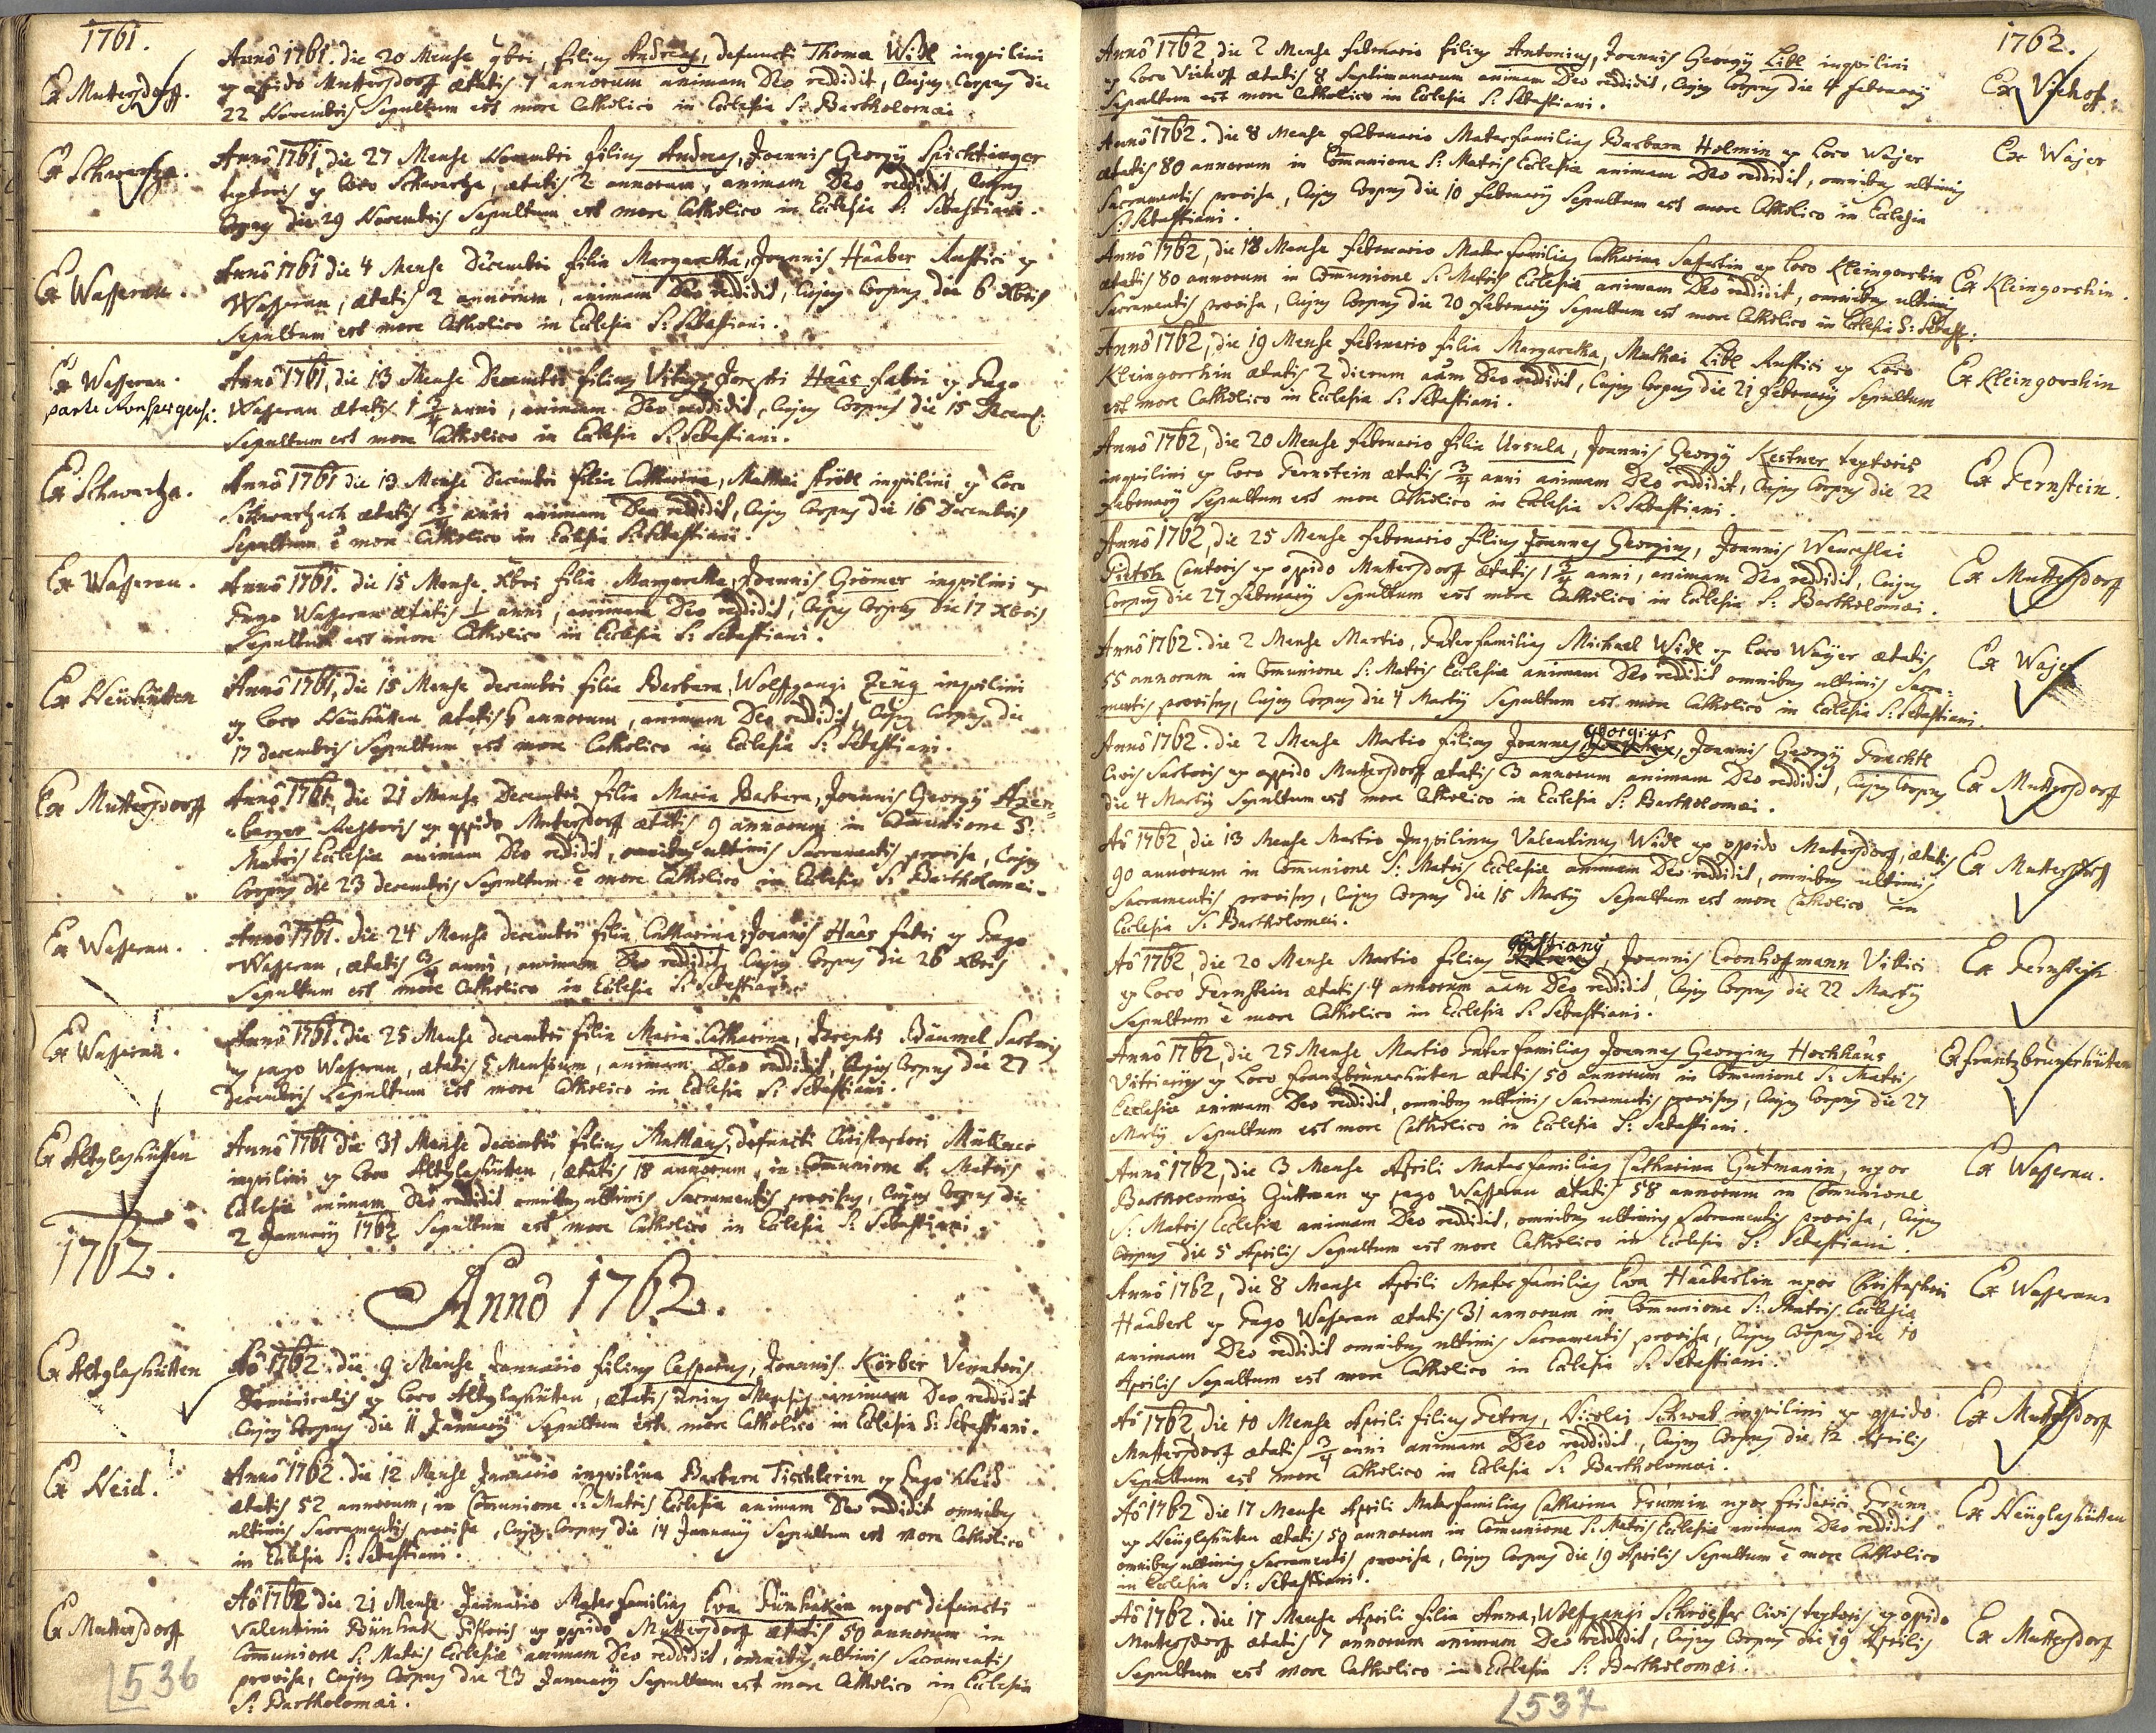 1761.
Ex Muttersdorff.
Anno 1761. die 20 Mense 9bri, filius Andreas, defuncti Thomæ Widl inquilini
ex oppido Muttersdorff ætatis 7 annorum animam Deo reddidit, Cujus Corpus die
22 Novembris Sepultum est more Catholico in Ecclesia S: Bartholomæi
Ex Schwartza.
Anno 1761, die 27 Mense Novembri filius Andreas, Joannis Georgÿ Spichtinger
textoris ex loco Schwartza, ætatis 2 annorum, animam Deo reddidit, Cujus
Corpus die 29 Novembris Sepultum est more Catholico in Ecclesia S: Sebastiani.
Ex Wasserau.
Anno 1761 die 4 Mense Decembri filia Margaretha, Joannis Haaber Rustici ex
Wasserau, ætatis 2 annorum, animam Deo reddidit, Cujus Corpus die 6 Xbris
Sepultum est more Catholico in Ecclesia S: Sebastiani.
Ex Wasserau.
parte Ronspergens:
Anno 1761, die 13 Mense Decembri filius Vitus, Josephi Haas fabri ex Pago
Wasserau ætatis 1 3/4 anni, animam Deo reddidit, Cujus Corpus die 15 Decemb:
Sepultum est more Catholico in Ecclesia S: Sebastiani.
Ex Schwartza.
Anno 1761 die 13 Mense Decembri filia Catharina, Mathæi Ströbl inquilini ex Loco
Schwartzach ætatis 3/4 anni animam Deo reddidit, Cujus Corpus die 16 Decembris
Sepultum ē more Catholico in Ecclesia S: Sebastiani.
Ex Wasserau.
Anno 1761. die 15 Mense Xbri filia Margaretha, Joannis Grömer inquilini ex
Pago Wasserau ætatis 1 anni, animam Deo reddidit, Cujus Corpus die 17 Xbris
Sepultum est more Catholico in Ecclesia S: Sebastiani.
Ex Neühütten
Anno 1761, die 15 Mense decembri filia Barbara, Wolffgangi Zeüg inquilini
ex loco Neühütten ætatis 6 annorum, animam Deo reddidit, Cujus Corpus die
17 decembris Sepultum est more Catholico in Ecclesia S: Sebastiani.
Ex Muttersdorff
Anno 1761, die 21 Mense Decembri filia Maria Barbara, Joannis Georgÿ Azen=
=berger Rectoris ex oppido Muttersdorff ætatis 9 annorum in Comunione S:
Matris Ecclesiæ animam Deo reddidit, omnibus ultimis Sacramentis provisa, Cujus
Corpus die 23 decembris Sepultum ē more Catholico in Ecclesia S: Bartholomæi.
Ex Wasserau.
Anno 1761. die 24 Mense decembri filia Catharina, Joannis Haas fabri ex Pago
Wasserau, ætatis 3/4 anni, animam Deo reddidit, Cujus Corpus die 26 Xbris
Sepultum est more Catholico in Ecclesia S: Sebastiani
Ex Wasserau.
Anno 1761. die 25 Mense decembri filia Maria Catharina, Josephi Bäumel Sartoris
ex pago Wasserau, ætatis 5 Mensium, animam Deo reddidit, Cujus Corpus die 27
decembris Sepultum est more Catholico in Ecclesia S: Sebastiani.
Ex Altglashütten
Anno 1761 die 31 Mense decembri filius Mathæus, defuncti Christophori Müllner
inquilini ex loco Altglashütten, ætatis 18 annorum, in Comunione S: Matris
Ecclesiæ animam Deo reddidit omnibus ultimis Sacramentis provisus, Cujus Corpus die
2 Januarÿ 1762 Sepultum est more Catholico in Ecclesia S: Sebastiani.
1762.
Anno 1762.
Ex Altglashütten
Aō 1762. die 9 Mense Januario filius Casparus, Joannis Körber Venatoris
Dominicalis ex loco Altglashütten, ætatis unius Mensis animam Deo reddidit
Cujus Corpus die 11 Januarÿ Sepultum est more Catholico in Ecclesia S: Sebastiani.
Ex Heid.
Anno 1762. die 12 Mense Januario inquilina Barbara Tischlerin ex Pago Heid
ætatis 52 annorum, in Comunione S: Matris Ecclesiæ animam Deo reddidit omnibus
ultimis Sacramentis provisa, Cujus Corpus die 14 Januarÿ Sepultum est more Catholico
in Ecclesia S: Sebastiani.
Ex Muttersdorff
Aō 1762 die 21 Mense Januario Materfamilias Eva Pünhakin uxor defuncti
Valentini Pünhak Pistoris ex oppido Muttersdorff ætatis 50 annorum in
Comunione S: Matris Ecclesiæ animam Deo reddidit, omnibus ultimis Sacramentis
provisa, Cujus Corpus die 23 Januarÿ Sepultum est more Catholico in Ecclesia
S: Bartholomæi.
536
1762.
Anno 1762 die 2 Mense februario filius Antonius, Joannis Georgÿ Libl inquilini
ex Loco Viehoff ætatis 8 Septimanarum animam Deo reddidit, Cujus Corpus die 4 februarÿ
Sepultum est more Catholico in Ecclesia S: Sebastiani.
Ex Viehoff.
Anno 1762. die 8 Mense februario Materfamilias Barbara Holmin ex Loco Waÿer
ætatis 80 annorum in Comunione S: Matris Ecclesiæ animam Deo reddidit, omnibus ultimis
Sacramentis provisa, Cujus Corpus die 10 februarÿ Sepultum est more Catholico in Ecclesia
S: Sebastiani.
Ex Wajer
Anno 1762, die 18 Mense februario Materfamilias Catharina Safertin ex loco Kleingorschin
ætatis 80 annorum in Comunione S: Matris Ecclesiæ animam Deo reddidit, omnibus ultimis
Sacramentis provisa, Cujus Corpus die 20 februarÿ Sepultum est more Catholico in Ecclesia S: Sebast:
Ex Kleingorshin.
Anno 1762, die 19 Mense februario filia Margaretha, Mathæi Libl Rustici ex Loco
Kleingorschin ætatis 2 dierum aām Deo reddidit, Cujus Corpus die 21 februarÿ Sepultum
est more Catholico in Ecclesia S: Sebastiani.
Ex Kleingorshin
Anno 1762, die 20 Mense februario filia Ursula, Joannis Georgÿ Kestner textoris
inquilini ex loco Fernstein ætatis 3/4 anni animam Deo reddidit, Cujus Corpus die 22
februarÿ Sepultum est more Catholico in Ecclesia S: Sebastiani.
Ex Fernstein.
Anno 1762, die 25 Mense februario filius Joannes Georgius, Joannis Wenceslai
Pietsch Cantoris ex oppido Muttersdorff ætatis 1 3/4 anni, animam Deo reddidit, Cujus
Corpus die 27 februarÿ Sepultum est more Catholico in Ecclesia S: Bartholomæi.
Ex Muttersdorff
Anno 1762. die 2 Mense Martio, Paterfamilias Michael Widl ex loco Waÿer ætatis
55 annorum in Comunione S: Matris Ecclesiæ animam Deo reddidit omnibus ultimis Sacra=
mentis provisus, Cujus Corpus die 4 Martÿ Sepultum est more Catholico in Ecclesia S: Sebastiani.
Ex Wajer
Georgius
Anno 1762. die 2 Mense Martio filius Joannes, Joannis Georgÿ Prechtl
Civis Sartoris ex oppido Muttersdorff ætatis 3 annorum animam Deo reddidit, Cujus Corpus
die 4 Martÿ Sepultum est more Catholico in Ecclesia S: Bartholomæi.
Ex Muttersdorff
Aō 1762, die 13 Mense Martio Inquilinus Valentinus Widl ex oppido Muttersdorff, ætatis
90 annorum in Comunione S: Matris Ecclesiæ animam Deo reddidit, omnibus ultimis
Sacramentis provisus, Cujus Corpus die 15 Martÿ Sepultum est more Catholico in
Ecclesia S: Bartholomæi.
Ex Muttersdorff
Aō 1762, die 20 Mense Martio filius, Joannis Cronhofmann Villici
ex loco Fernstein ætatis 4 annorum aām Deo reddidit, Cujus Corpus die 22 Martÿ
Sepultum ē more Catholico in Ecclesia S: Sebastiani.
Ex Fernstein
Anno 1762, die 25 Mense Martio Paterfamilias Joannes Georgius Hochhaus
Vitriarius ex Loco frantzbrunerhütten ætatis 50 annorum in Comunione S: Matris
Ecclesiæ animam Deo reddidit, omnibus ultimis Sacramentis provisus, Cujus Corpus die 27
Martÿ Sepultum est more Catholico in Ecclesia S: Sebastiani.
Ex frantzbrunerhütten
Anno 1762, die 3 Mense Aprili Materfamilias Catharina Gutmanin, uxor
Bartholomæi Guttman ex pago Wasserau ætatis 58 annorum in Comunione
S: Matris Ecclesiæ animam Deo reddidit, omnibus ultimis Sacramentis provisa, Cujus
Corpus die 5 Aprilis Sepultum est more Catholico in Ecclesia S: Sebastiani.
Ex Wasserau.
Anno 1762, die 8 Mense Aprili Materfamilias Eva Haaberlin uxor Christophori
Haaberl ex Pago Wasserau ætatis 31 annorum in Comunione S: Matris Ecclesiæ
animam Deo reddidit omnibus ultimis Sacramentis provisa, Cujus Corpus die 10
Aprilis Sepultum est more Catholico in Ecclesia S: Sebastiani.
Ex Wasserau
Aō 1762, die 10 Mense Aprili filius Petrus, Nicolai Schwab inquilini ex oppido
Muttersdorff ætatis 3/4 anni animam Deo reddidit, Cujus Corpus die 12 Aprilis
Sepultum est more Catholico in Ecclesia S: Bartholomæi.
Ex Muttersdorff
Aō 1762 die 17 Mense Aprili Materfamilias Catharina Prumin uxor friderici Prunn
ex Neüglashütten ætatis 59 annorum in Comunione S: Matris Ecclesiæ animam Deo reddidit
omnibus ultimis Sacramentis provisa, Cujus Corpus die 19 Aprilis Sepultum ē more Catholico
in Ecclesia S: Sebastiani.
Ex Neüglashütten
Aō 1762. die 17 Mense Aprili filia Anna, Wolfgangi Schröpfer Civis textoris ex oppido
Muttersdorff ætatis 7 annorum animam Deo reddidit, Cujus Corpus die 19 Aprilis
Sepultum est more Catholico in Ecclesia S: Bartholomæi.
Ex Muttersdorff
537